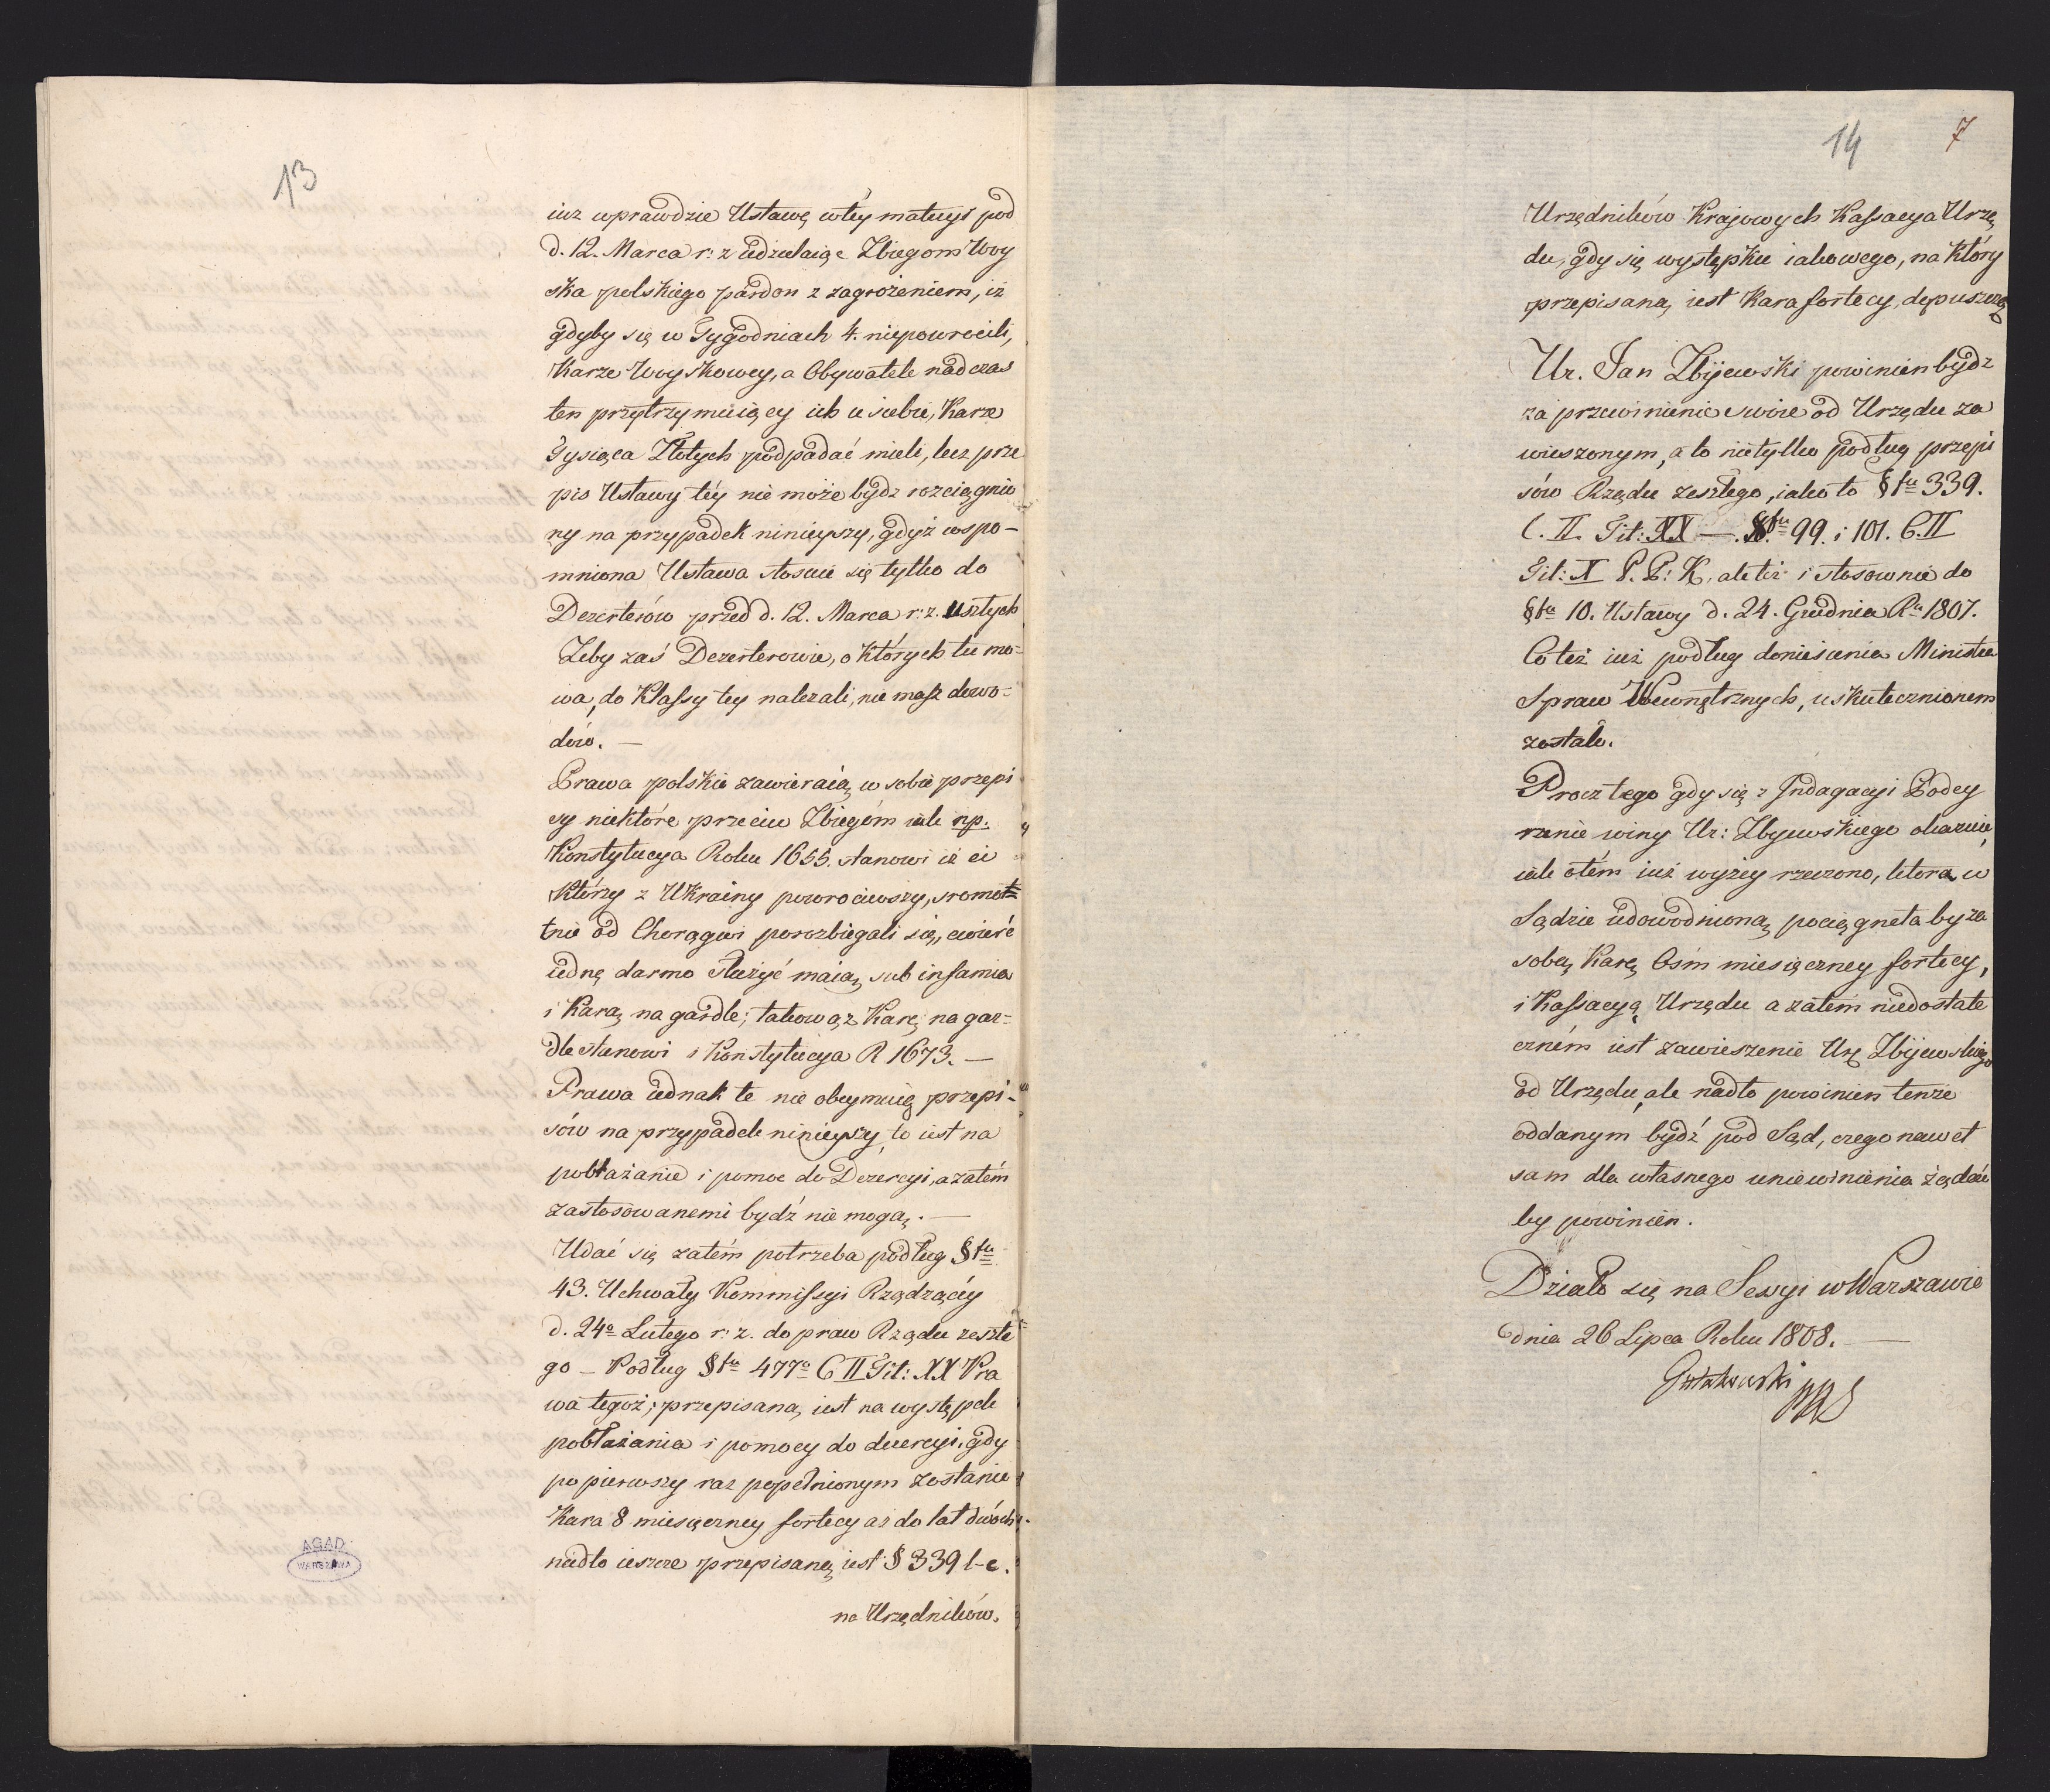 13
iuz wprawdzie Ustawę w téy materyi pod
d. 12. Marca r: z udzielaiąc Zbiegom Woy
ska polskiego pardon z zagrożeniem, iż
gdyby się w Tygodniach 4. niepowrócili,
Karze Woyskowey, a Obywatele nad czas
ten przytrzymuiący ich u siebie, Karze
Tysiąca Złotych podpadać mieli, lecz prze
pis Ustawy téy nie może bydz rozciągnio
ny na przypadek ninieyszy, gdyż wspo-
mniona Ustawa stosuie się tylko do
Dezerterów przed d. 12. Marca r: z. uszłych
Żeby zaś Dezerterowie, o których tu mo-
wa, do Klassy tey należali, nie masz dowo-
dów. —
Prawa polskie zawieraią w sobie przepi
sy niektóre przeciw Zbiegóm iak np.
Konstytucya Roku 1655. stanowi iż ci
którzy z Ukrainy powrociwszy, sromot=
tnie od Chorągwi porozbiegali się, cwierć
iednę darmo służyć maią, sub infamia
i karą na gardle; takowąż Karę na gar=
dle stanowi i Konstytucya R 1673. —
Prawa iednak te nie obeymuią przepi-
sów na przypadek ninieyszy to iest na
pobłażanie i pomoc do Dezercyi, a zatém
zastosowanemi bydź nie mogą. —
Udać się zatém potrzeba podług § fu
43. Uchwały Kommissyi Rządzącéy
d. 24o Lutego r: z. do praw Rządu zeszłe
go — Podług § fu 477o C II Tit: XX Pra
wa tegoż, przepisana, iest na występek
pobłażania i pomocy do dezercyi, gdy
po pierwszy raz popełnionym zostanie
Kara 8 miesięczney fortecy aż do lat dwóch
nadto ieszcze przepisaną iest § 339 l-c.
na Urzędników.
AGAD
WARSZAWA
14
7
Urzędników Krajowych Kassacya Urzę
du, gdy się występku iakowego, na który
przepisana, iest Kara fortecy, dopuszczą
Ur. Jan Zbijewski powinien bydz
za przewinienie swoie od Urzędu za
wieszonym, a to nietylko podług przepi
sów Rządu zeszłego, iako to § fu 339.
C. II. Tit: XX — . § fu 99. i 101. C. II
Tit: X P. P: K, ale też i stosownie do
§ fu 10. Ustawy d. 24. Grudnia Ru 1807.
Co też iuż podług doniesienia Ministra
Spraw Wewnętrznych, uskutecznionem
zostało.
Procz tego gdy się z Indagacyi Podey
rzenie winy Ur: Zbyewskiego okazuie,
iak o tém iuż wyżey rzeczono, która, w
Sądzie udowodnioną, pociągnęła by za
sobą Karę Ośm miesięczney fortecy,
i Kassacyą Urzędu a zatém niedostate
czném iest zawieszenie Urę Zbijewskiego
od Urzędu, ale nadto powinien tenże
oddanym bydź pod Sąd, czego nawet
sam dla własnego uniewinienia żądać
by powinien.
Działo się na Sessyi w Warszawie
dnia 26 Lipca Roku 1808. —